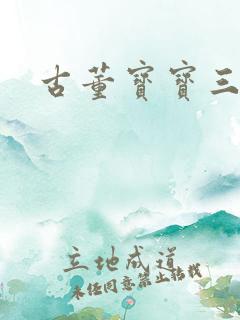 古董寶寶三
立地成道
未经同意禁止转载